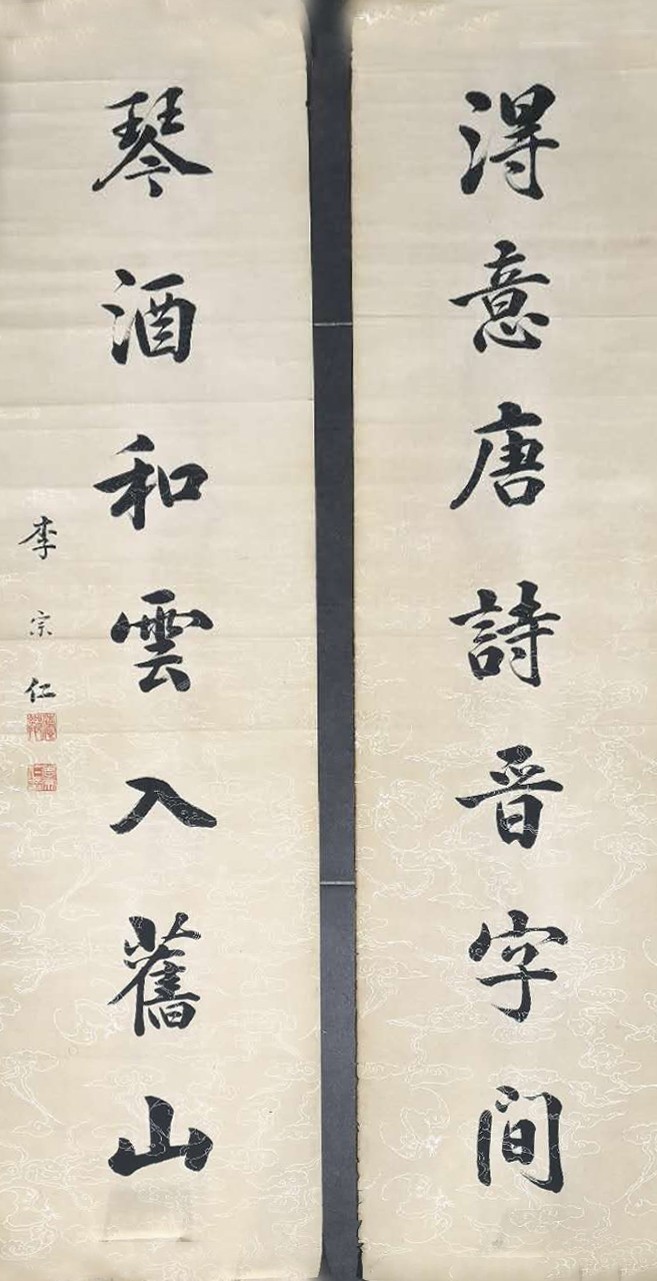 得意唐詩晋字間
琴酒和雲入舊山
李宗仁